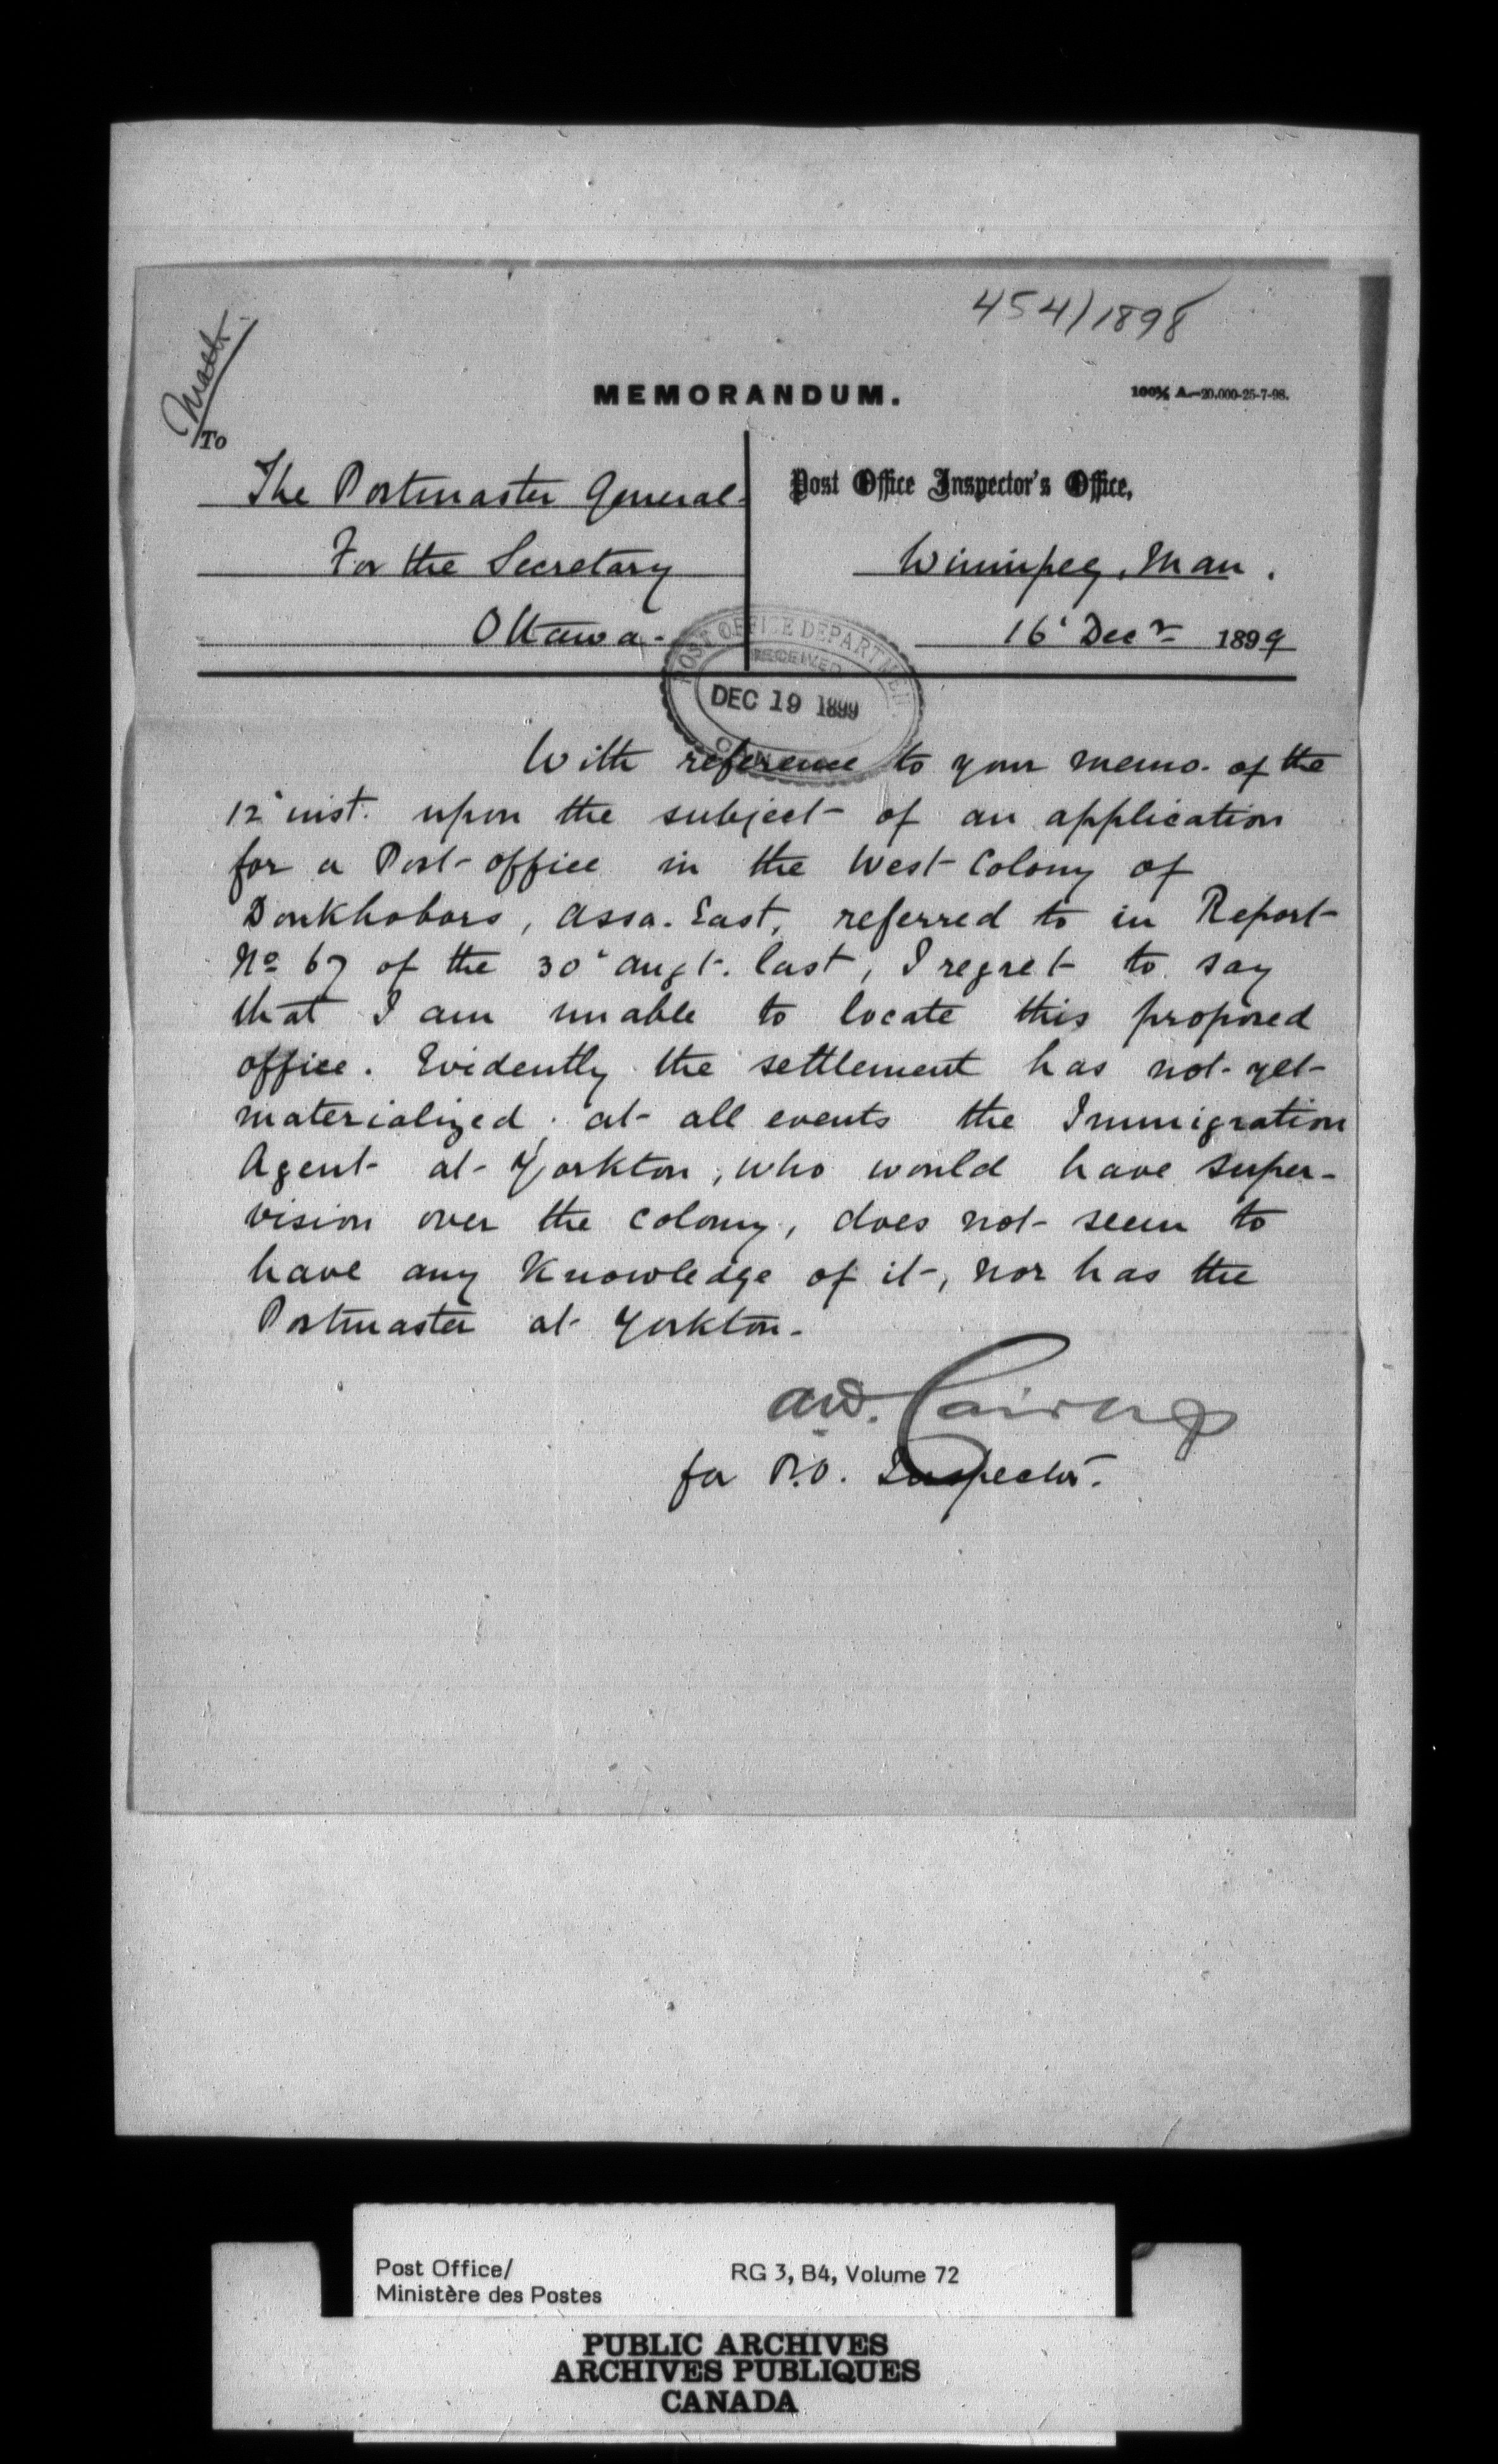 454/1898
MEMORANDUM.
100½ A.—20,000-25-7-98.
To
The Postmaster General
For the Secretary
Ottawa.
Post Office Inspector's Office,
Winnipeg, Man.
16' Decr 1899
POST OFFICE DEPARTMENT
RECEIVED
DEC 19 1899
With reference to your memo. of the
12' inst. upon the subject of an application
for a Post-office in the West Colony of
Doukhobors, Assa. East, referred to in Report
No 67 of the 30' Augt. last, I regret to say
that I am unable to locate this proposed
office. Evidently the settlement has not yet
materialized; at all events the Immigration
Agent at Yorkton, who would have super-
vision over the colony, does not seem to
have any knowledge of it, nor has the
Postmaster at Yorkton.
AW. Cairns
for P.O. Inspector.
Post Office/
Ministère des Postes
RG 3, B4, Volume 72
PUBLIC ARCHIVES
ARCHIVES PUBLIQUES
CANADA